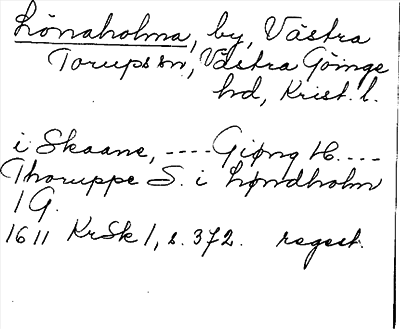 Lönaholma, by, Västra
Torups sn, Västra Göinge
hd, Krist. l.
i Skaane, ---- Giøng H. ----
Thoruppe S. i Løndholm
1 G.
1611 KrSk 1, s. 372. regest.